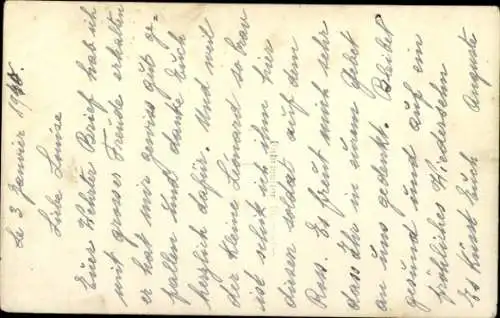 Le 3 Janvier 1918.
Liebe Louise
Euer lehter Brief hab ich
mit groser Freude erhalten
er hat mir gewiss gut ge-
fallen und danke Euch
herzlich dafür. Und weil
der kleine Leonard so brav
ist schik ich ihm hier
diesen soldat auf dem
Russ. Es freut mich sehr
dass Ihr in eurem Gebet
an uns gedenkt. Bleibet
gesund und auf ein
fröhliches Wiedersehn
Es küsst Euch Auguste